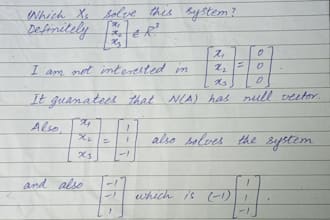 Which Xs solve this system?
Definitely [x₁ x₂ x₃] ∈ R³
I am not interested in [x₁ x₂ x₃] = [0 0 0]
It guanatees that N(A) has null vector.
Also, [x₁ x₂ x₃] = [1 1 -1] also solves the system
and also [-1 -1 1] which is (-1) [1 1 -1].